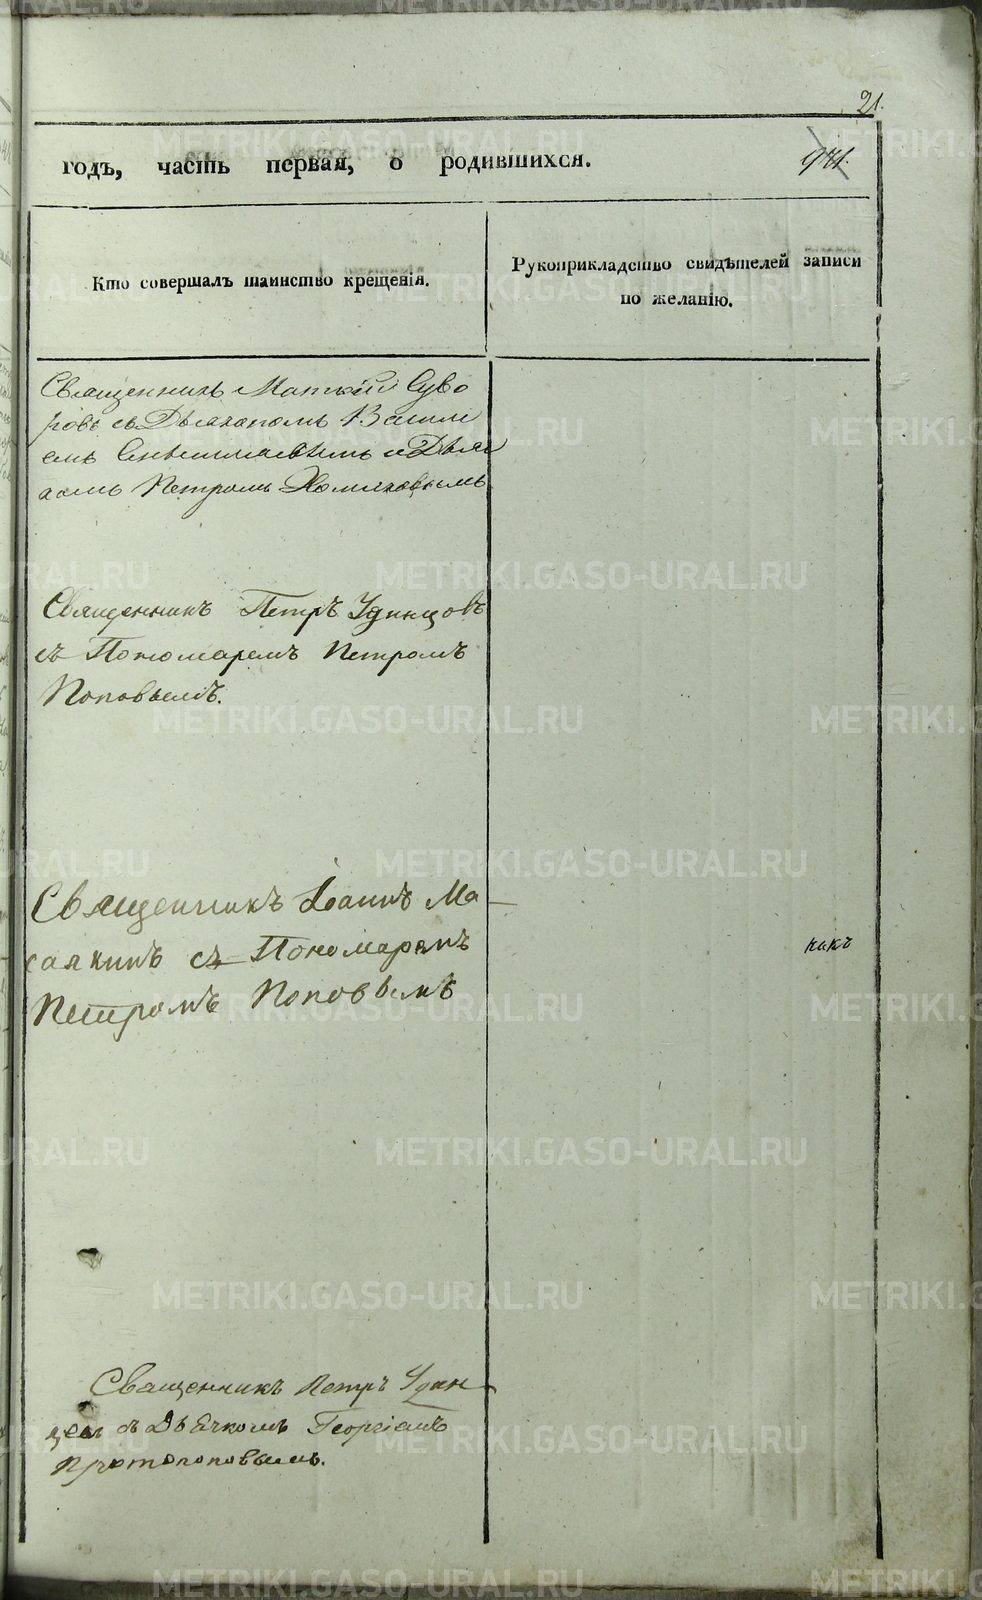 21.
годъ, часть первая, о родившихся.
941.
Кто совершалъ таинство крещенія.
Рукоприкладство свидѣтелей записи
по желанію.
Священникъ Матѳій Суво
ровъ съ Дьякономъ Васили
емъ и Дьяч
комъ Петромъ Хомяковымъ
Священникъ Петръ Удинцовъ
съ Пономаремъ Петромъ
Поповымъ.
Священникъ Іоаннъ Ма
съ Пономаремъ
Петромъ Поповымъ
Священникъ Петръ Удин
цовъ съ Дьячкомъ Георгіемъ
Протопоповымъ.
METRIKI.GASO-URAL.RU